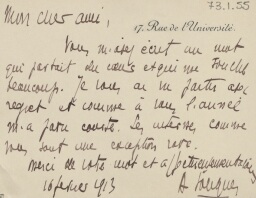 73.1.55
Mon cher ami,
17, Rue de l'Université.
Vous m'avez écrit un mot
qui partait du cœur et qui me touche
beaucoup. Je vous en
regret et comme à vous, l'année
m'a paru courte. Les comme
vous sont une exception rare.
Merci de votre mot et
16 février 1913
A